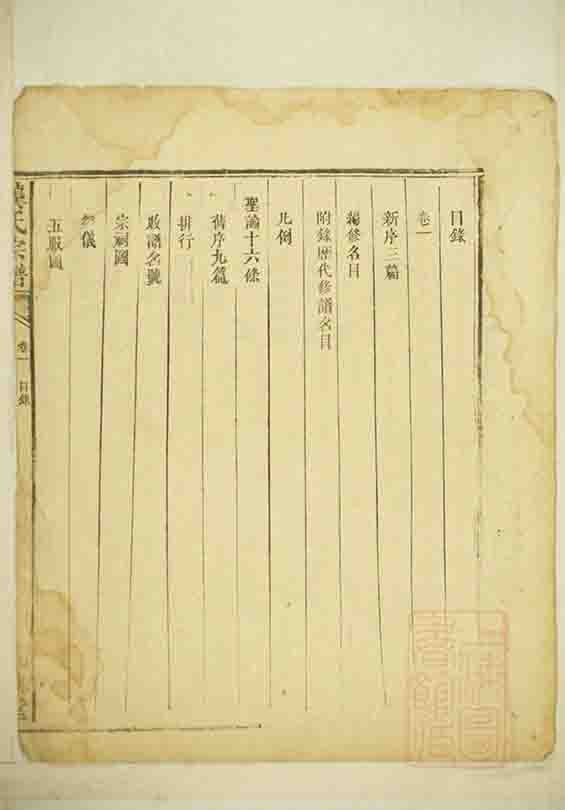 目錄
卷一
新序三篇
編修名目
附錄歷代修譜名目
凡例
聖諭十六條
舊序九篇
排行
收譜名號
宗祠圖
祭儀
五服圖
氏宗譜
卷一
目錄
上海圖書館藏